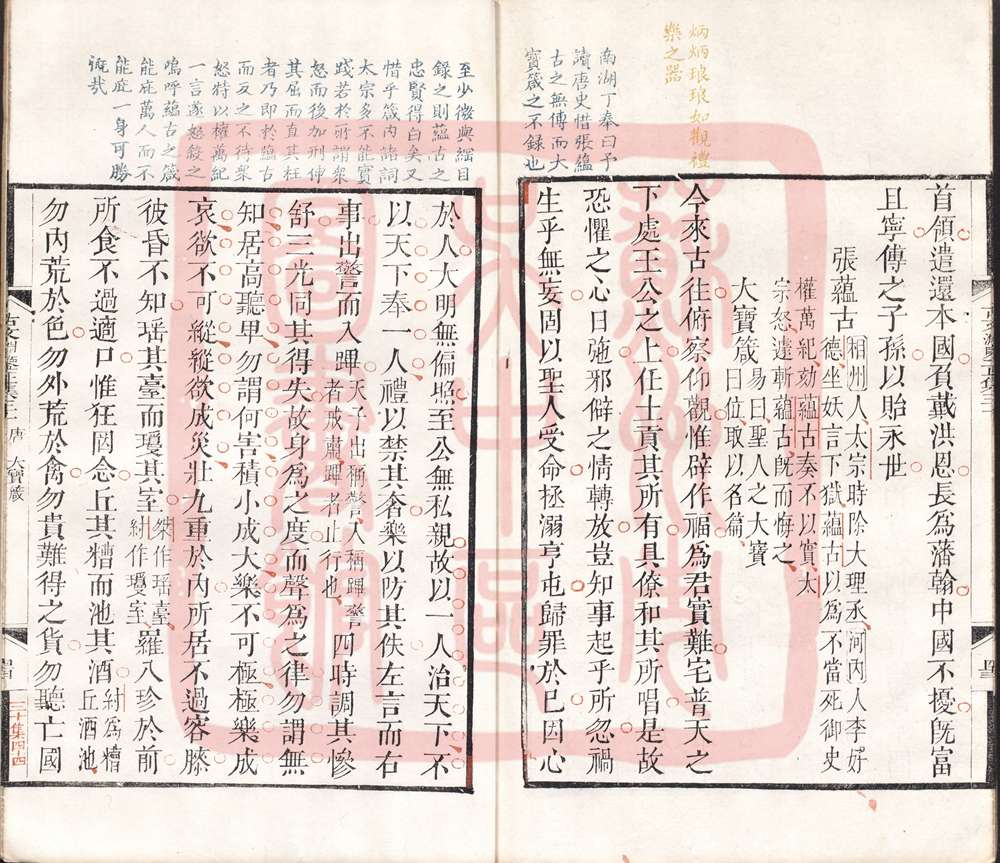 炳炳琅琅如觀禮
樂之器
南湖丁奉曰予
讀唐史惜張蘊
古之無傳而大
寶箴之不錄也
首領遣還本國頁戴洪恩長爲藩翰中國不擾旣富
且寧傳之子孫以貽永世
張蘊古
相州人太宗時除大理丞河內人李好
德坐妖言下獄蘊古以為不當死御史
權萬紀劾蘊古奏不以實太
宗怒遽斬蘊古旣而悔之
大寶箴
易曰聖人之大寶
曰位取以名篇
今來古往俯察仰觀惟辟作福爲君實難宅普天之
下處王公之上任土貢其所有具僚和其所唱是故
恐懼之心日弛邪僻之情轉放豈知事起乎所忽禍
生乎無妄固以聖人受命拯溺亨屯歸罪於己因心
至少微與綱目
錄之則蘊古之
忠賢得白矣又
惜乎箴內諸詞
太宗多不能實
踐若於所謂衆
怒而後加刑伸
其屈而直其枉
者乃即於蘊古
而反之不待衆
怒特以權萬紀
一言遂怒殺之
嗚呼蘊古之箴
能庇萬人而不
能庇一身可勝
慨哉
於人大明無偏照至公無私親故以一人治天下不
以天下奉一人禮以禁其奢樂以防其佚左言而右
事出警而入蹕
天子出稱警入稱蹕警
者戒肅蹕者止行也
四時調其慘
舒三光同其得失故身爲之度而聲爲之律勿謂無
知居高聽卑勿謂何害積小成大樂不可極極樂成
哀欲不可縱縱欲成災壯九重於內所居不過容膝
彼昏不知瑤其臺而瓊其室
桀作瑤臺
紂作瓊室
羅八珍於前
所食不過適口惟狂罔念丘其糟而池其酒
紂爲糟
丘酒池
勿內荒於色勿外荒於禽勿貴難得之貨勿聽亡國
唐 大寶箴
三十集四四